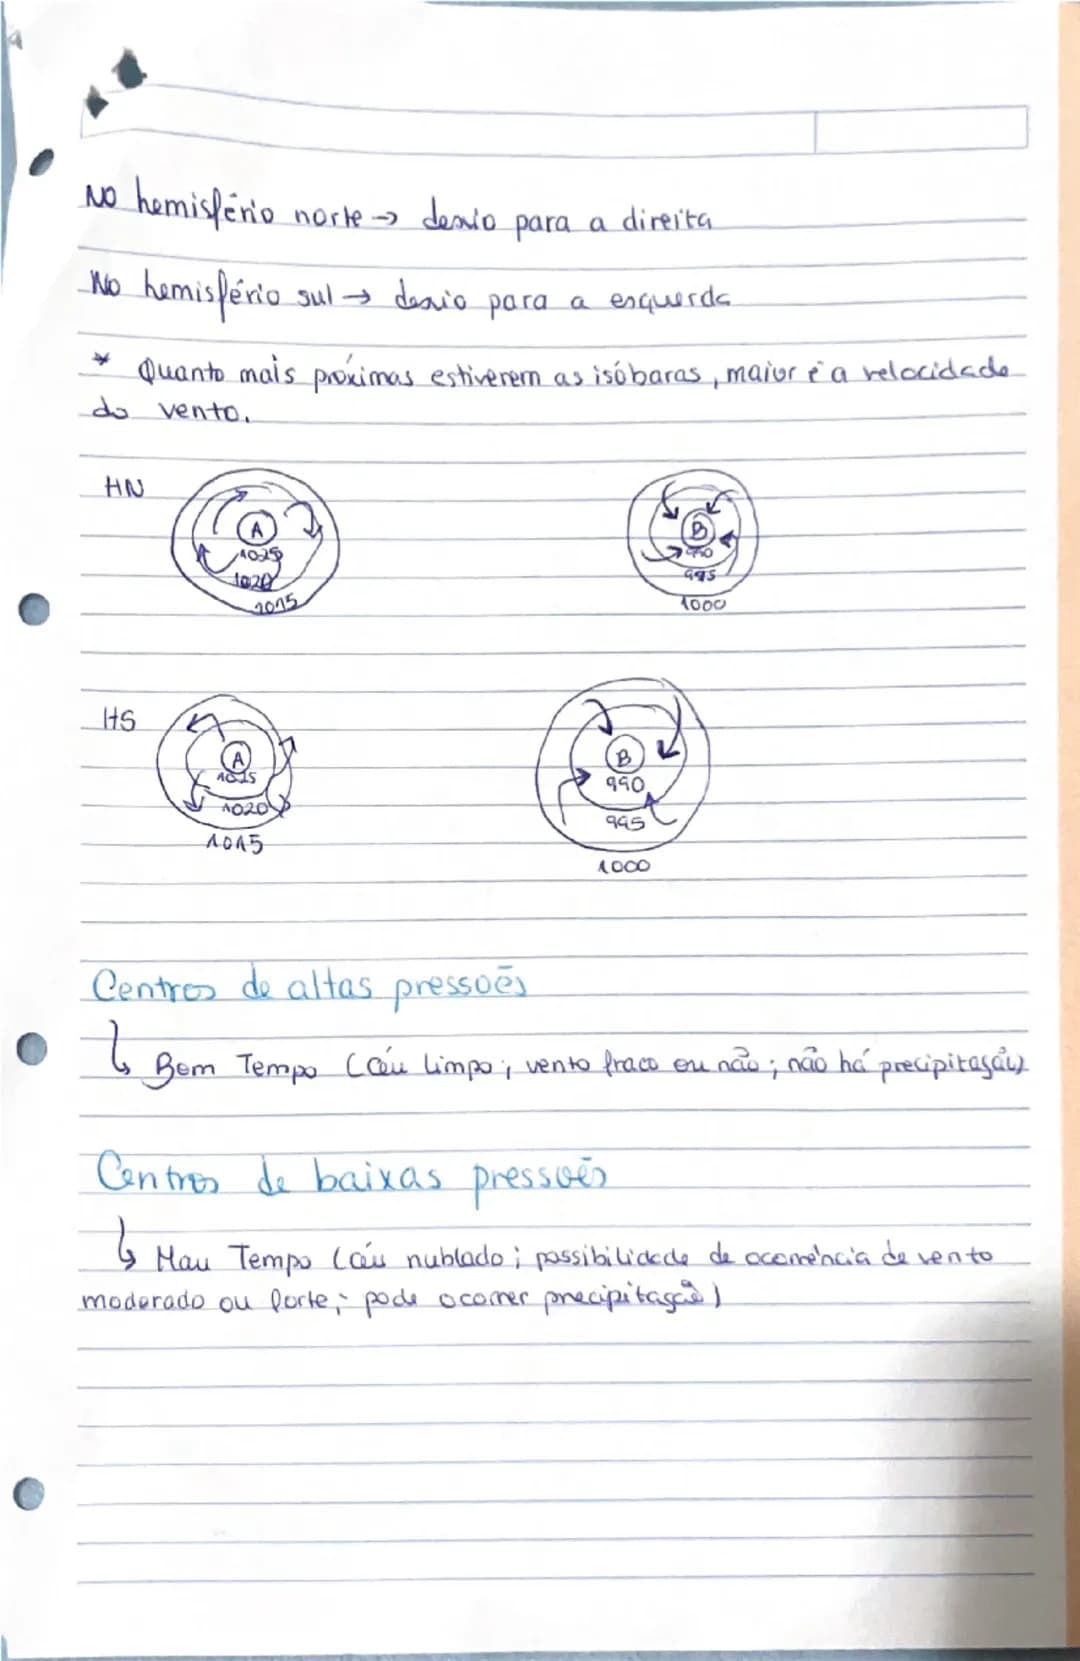 No hemisfério norte → desvio para a direita
No hemisfério sul → desvio para a esquerda
* Quanto mais próximas estiverem as isóbaras, maior é a velocidade
do vento.
HN
A
1025
1020
1015
B
990
995
1000
HS
A
1025
1020
1015
B
990
995
1000
Centros de altas pressoẽs
↳ Bom Tempo (Céu limpo; vento fraco ou não; não há precipitação)
Centros de baixas pressoẽs
↳ Mau Tempo (céu nublado; possibilidade de ocorrência de vento
moderado ou forte; pode ocorrer precipitação)